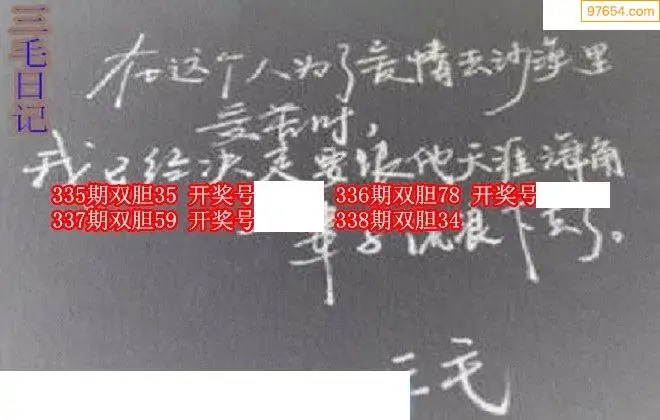 97654.com
三毛日记
在这个人为了爱情去沙漠里
受苦时，
我已经决定要跟他天涯海角
335期双胆35 开奖号 336期双胆78 开奖号
337期双胆59 开奖号 338期双胆34
下去了。
三毛